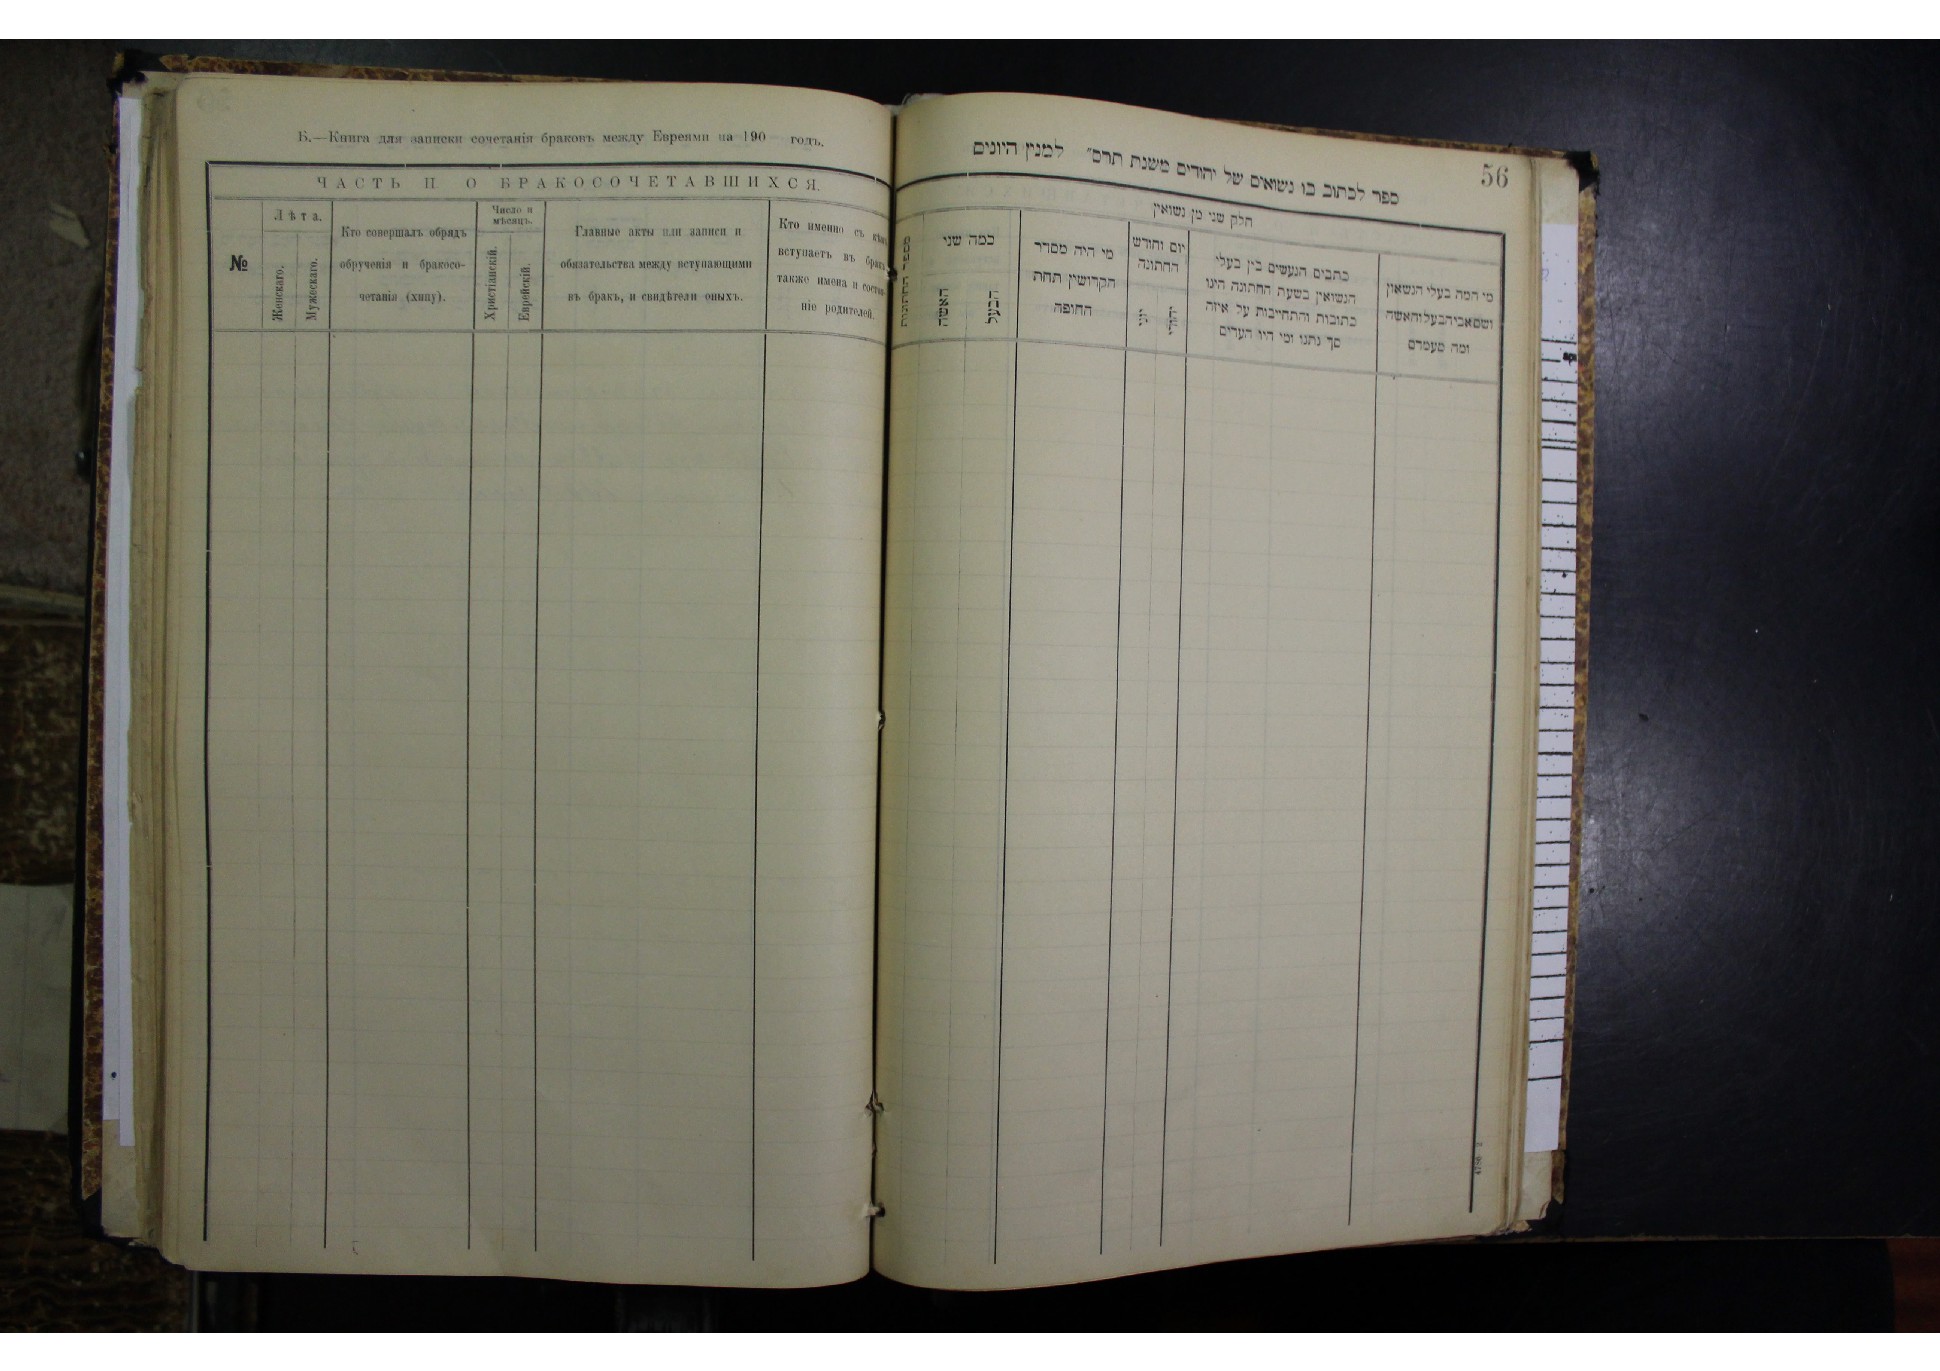 Б.—Книга для записки сочетанія браковъ между Евреями на 190 годъ.
ЧАСТЬ II. О БРАКОСОЧЕТАВШИХСЯ.
№
Лѣта.
Женскаго.
Мужескаго.
Кто совершалъ обрядъ
обрученія и бракосо-
четанія (хупу).
Число и
мѣсяцъ.
Христіанскій.
Еврейскій.
Главные акты или записи и
обязательства между вступающими
въ бракъ, и свидѣтели оныхъ.
Кто именно съ кѣмъ
вступаетъ въ бракъ,
также имена и состоя-
ніе родителей.
56
ספר לכתוב בו נשואים של יהודים משנת תרס״ למנין היונים
חלק שני מן נשואין
מספר החתונות
כמה שני
האשה
הבעל
מי היה מסדר
הקדושין תחת
החופה
יום וחודש
החתונה
יוני
יהודי
כתבים הנעשים בין בעלי
הנשואין בשעת החתונה היגו
כתובות והתחייבות על איזה
סך נתנו ומי היו העדים
מי המה בעלי הנשואין
ושם אבי הבעל והאשה
ומה מעמדם